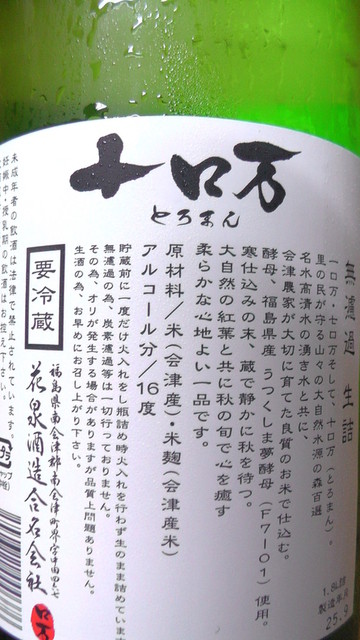 十口万
とろまん
無濾過 生詰
一口万・七口万そして、十口万(とろまん)。
里の民が守る山々の大自然水源の森百選
名水高清水の湧き水と共に、
会津農家が大切に育てた良質のお米で仕込む。
酵母、福島県産 うつくしま夢酵母(F7-01)使用。
寒仕込みの末、蔵で静かに秋を待つ。
大自然の紅葉と共に秋の旬で心を癒す
柔らかな心地よい一品です。
原材料/米(会津産)・米麹(会津産米)
アルコール分/16度
貯蔵前に一度だけ火入れをし瓶詰め時火入れを行わず生のまま詰めていま
無濾過の為、炭素濾過等は一切行っておりません。
その為、オリが発生する場合がありますが品質上問題ありません。
生酒の為、お早めにお召し上がり下さい。
要冷蔵
福島県南会津郡南会津町界字中田646-1
花泉酒造合名会社
口万
未成年者の飲酒は法律で禁止されています。
妊娠中・授乳期の飲酒はお控え下さい。
1.8L詰
製造年月
25.9